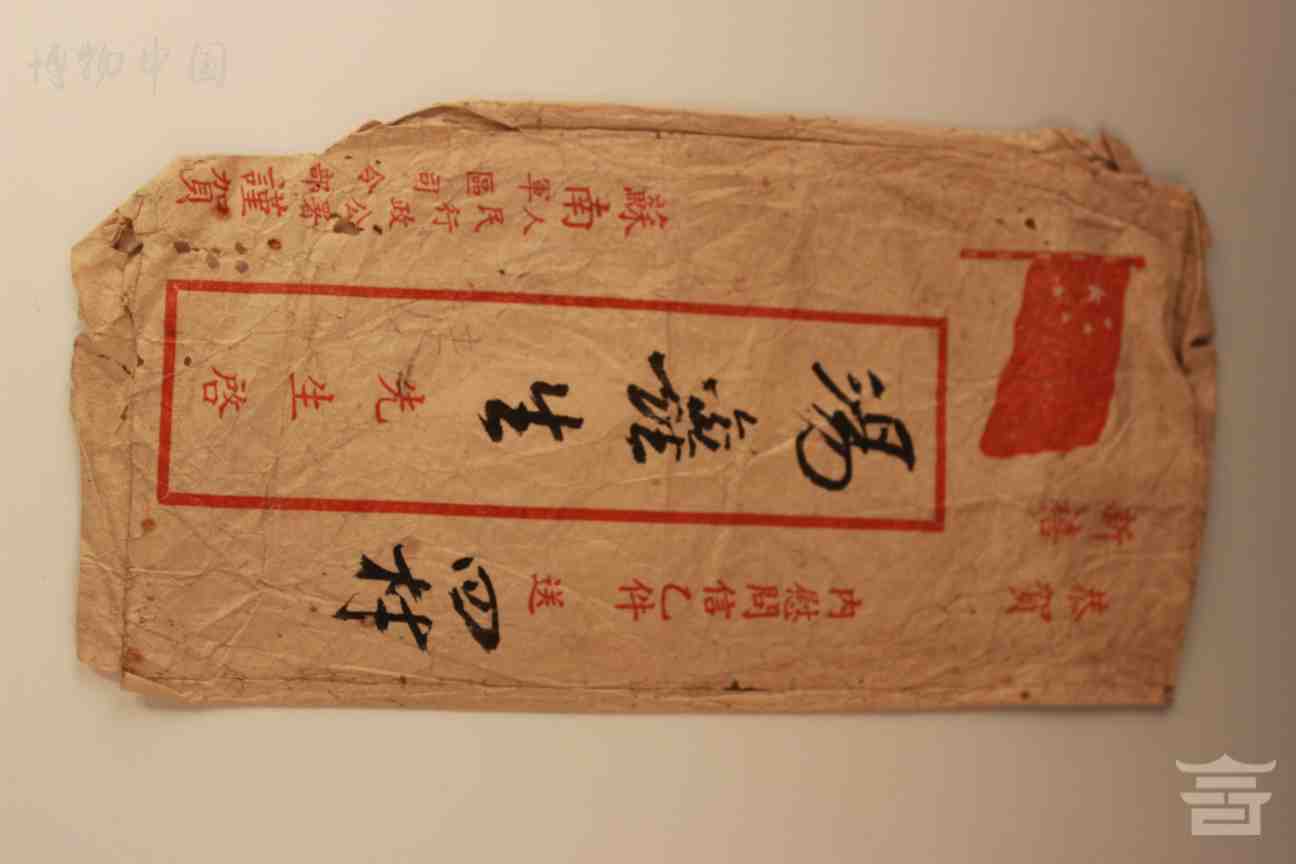 博物中国
恭賀
新禧
內慰問信乙件
送
四村
湯 生
先生啓
蘇南
人民行政公署
軍區司令部
謹賀